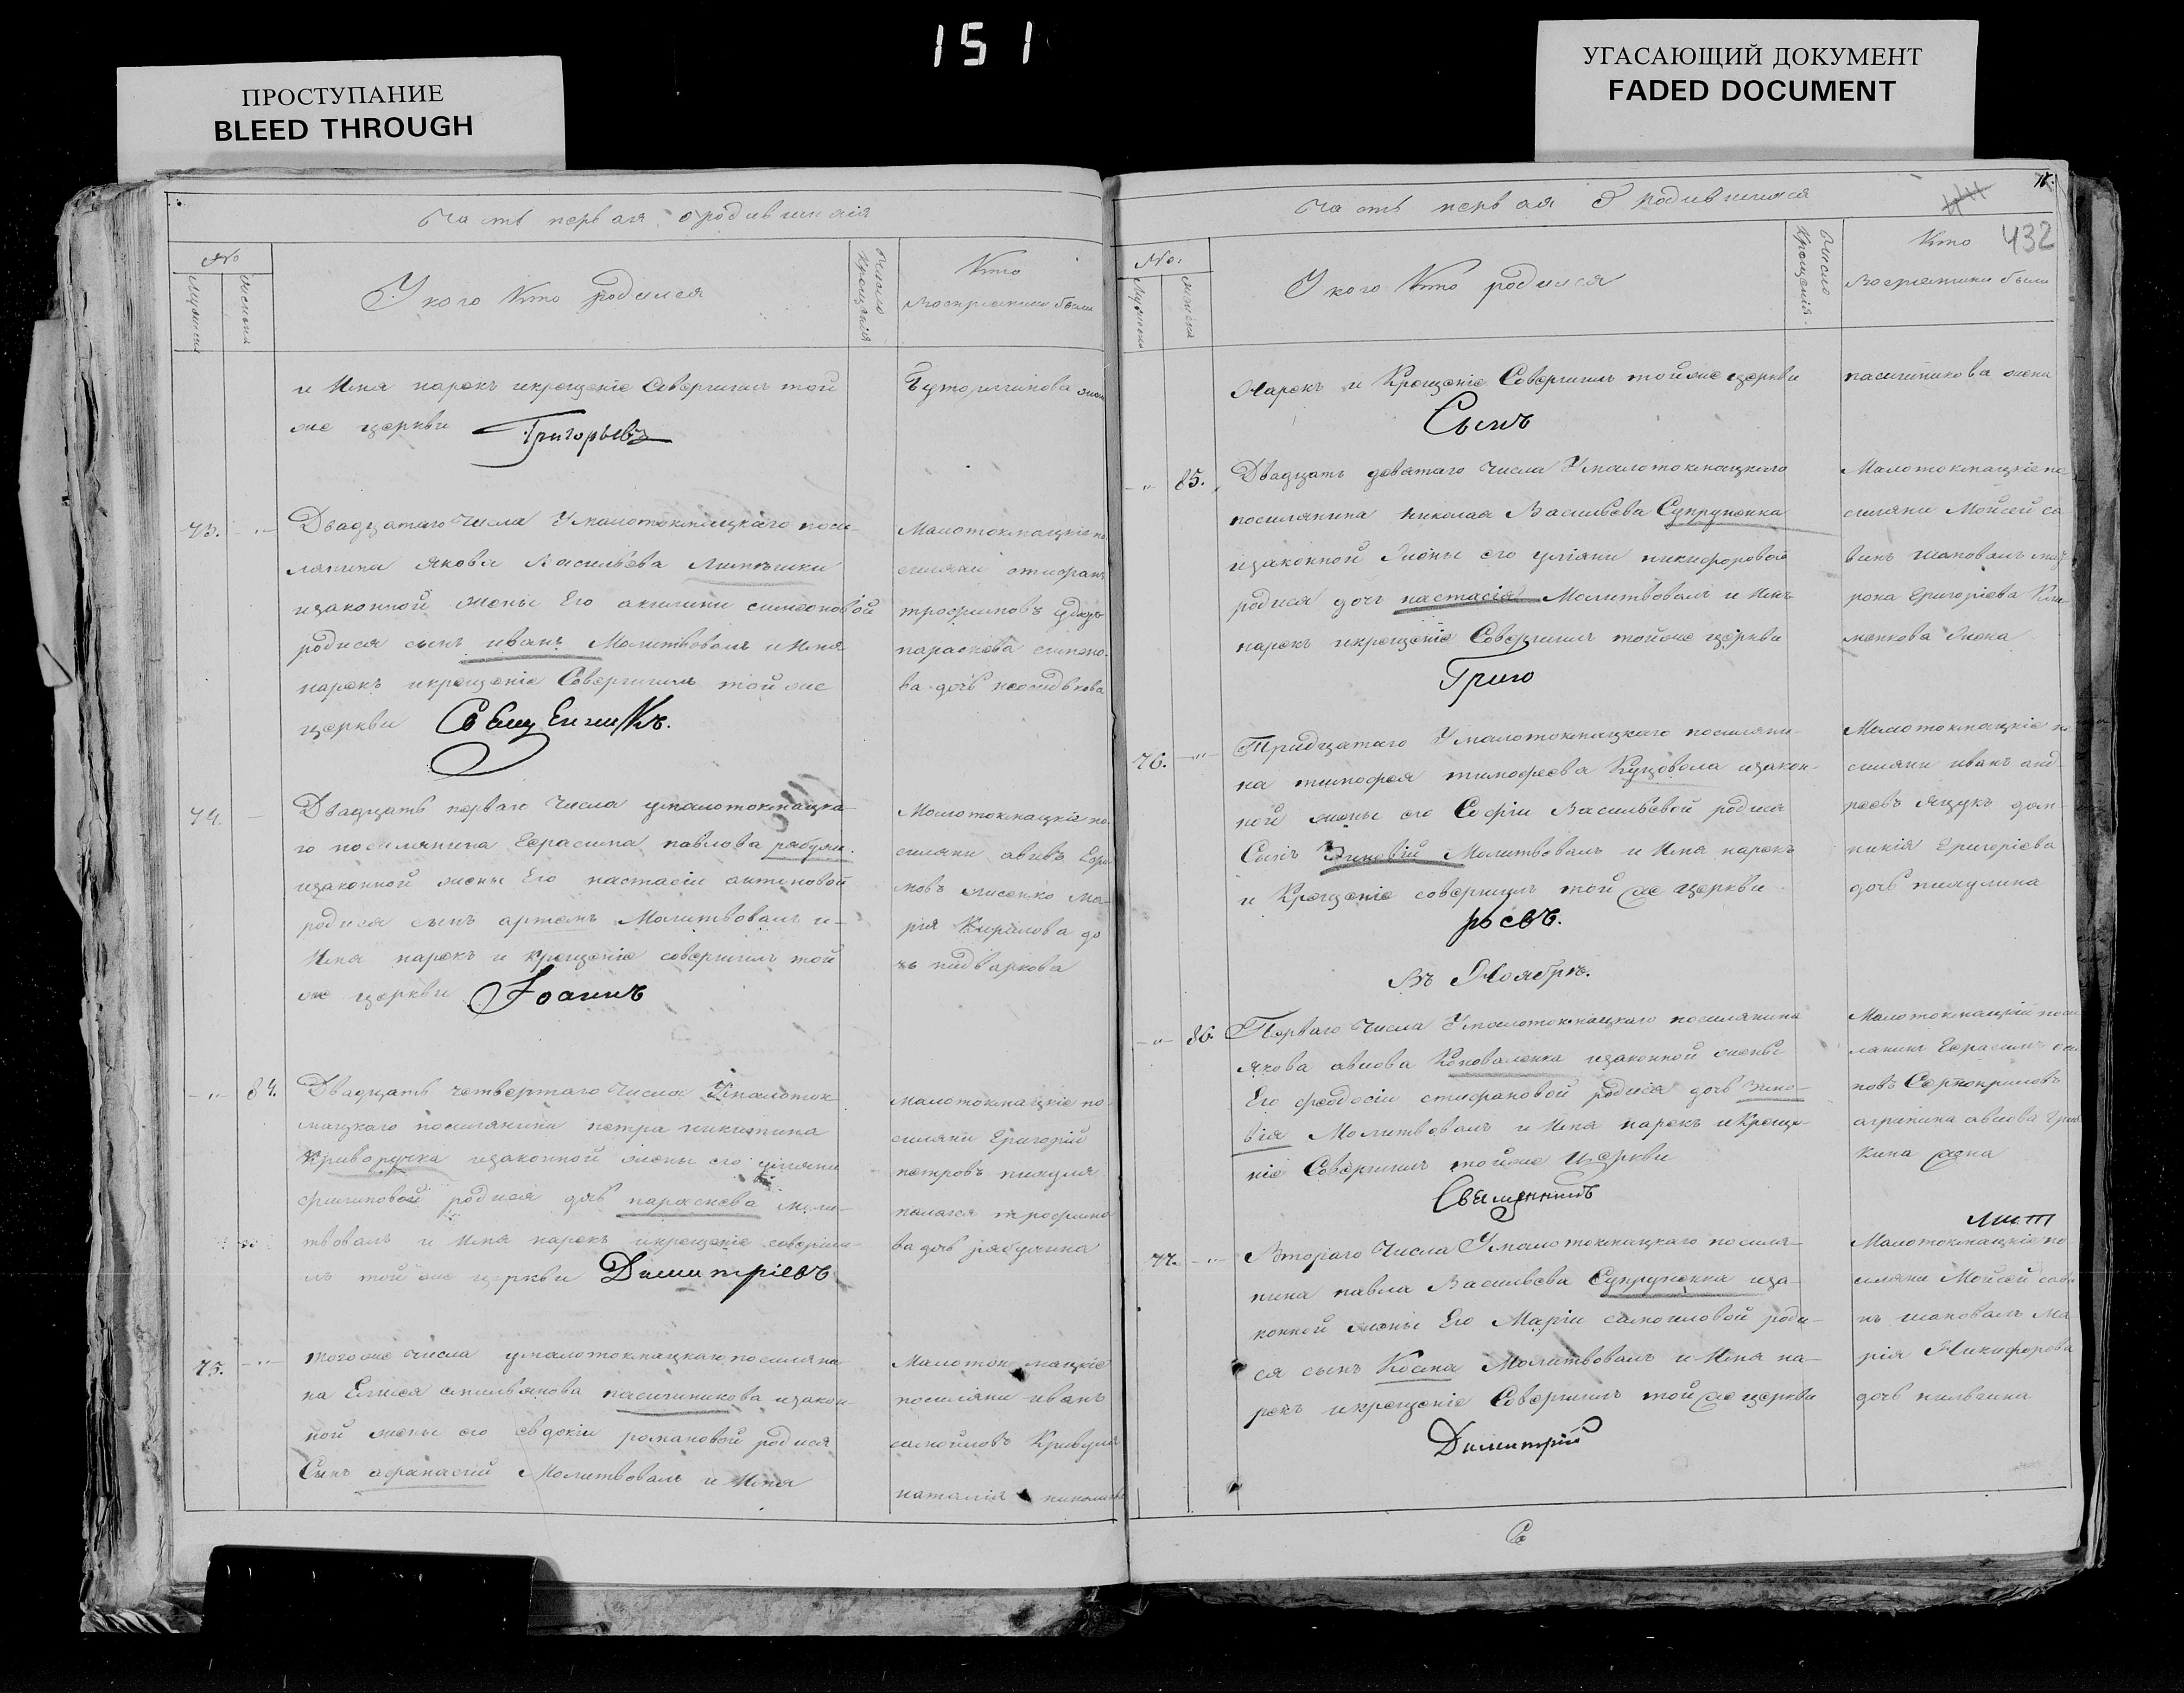 151
ПРОСТУПАНИЕ
BLEED THROUGH
УГАСАЮЩИЙ ДОКУМЕНТ
FADED DOCUMENT
Часть первая о родившихся
№
Мужеска
Женска
У кого кто родился
Число
Крещенія
Кто
Воспріемники были
и Имя нарокъ икрещеніе Совершилъ той
же церкви Григорьевъ
73.
Двадцатаго Числа Умалотокмацкаго посе-
лянина Якова Васильева
изаконной жены Его акилини симеоновой
родися сынъ иванъ Молитвовалъ и Имя
нарокъ икрещеніе Совершилъ той же
церкви Священникъ.
Малотокмацкіе по
селяни
трофимовъ
параскева
ва дочь
74.
Двадцать перваго Числа умалотокмацка-
го поселянина Герасима павлова
изаконной жены Его настасіи антоновой
родися сынъ артемъ Молитвовалъ и-
Имя нарокъ и крещеніе совершилъ той
же церкви Іоаннъ
Малотокмацкіе по-
селяни
новъ лисенко Ма-
рія Кирилова до
чь пидваркова
84.
Двадцать четвертаго Числа Умалоток-
мацкаго поселянина петра никитина
Криворучка изаконной жены его уліяни
филиповой родися дочь параскева моли-
твовалъ и Имя нарокъ икрещеніе соверши-
лъ той же церкви Димитріевъ
малотокмацкіе по-
селяни Григорій
петровъ пикуля
палагея трофимо
ва дочь рябухина
75.
Тогоже числа умалотокмацкаго поселяни-
на Елисея пасишникова изакон-
ной жены его евдокіи романовой родися
Сынъ афанасій Молитвовалъ и Имя
Малотокмацкіе
поселяни иванъ
самойловъ Кривуля
наталія
Часть первая О родившихся
71.
432
№.
Мужеска
женска
У кого Кто родился
Число
Крещенія.
Кто
Воспріемники были
Нарокъ и Крещеніе Совершилъ тойже церкви
Сынъ
пасишникова жена
85.
Двадцать девятаго Числа Умалотокмацкаго
поселянина николая Васильева Супруненка
изаконной жены его уліяни никифоровой
родися дочь настасія Молитвовалъ и Имя
нарокъ икрещеніе Совершилъ тойже церкви
Григо
Малотокмацкіе по
селяни Мойсей са
винъ шаповалъ мат
рона Григоріева Кли-
менкова жена
76.
Тридцатаго Умалотокмацкаго поселяни-
на тимофея тимофеева Куцовола изакон-
ной жены его Софіи Васильевой родися
Сынъ Зиновій Молитвовалъ и Имя нарокъ
и Крещеніе совершилъ той же церкви
рьевъ.
Малотокмацкіе по
селяни иванъ анд-
реевъ яцукъ дом-
никія Григоріева
дочь пикулина
Въ Ноябрѣ.
86.
Перваго Числа Умалотокмацкаго поселянина
якова Коноваленка изаконной жены
Его феодосіи стифановой родися дочь Зино-
вія Молитвовалъ и Имя нарокъ и Креще-
ніе Совершилъ тойже Церкви
Священникъ
Малотокмацкій посе
лянинъ Герасимъ
новъ
агрипина
кина жена
77.
Втораго Числа Умалотокмацкаго поселя-
нина павла Васильева Супруненка иза-
конной жены Его Маріи самоиловой роди-
ся сынъ Косма Молитвовалъ и Имя на-
рокъ икрещеніе Совершилъ той же церкви
Димитрій
Малотокмацкіе по-
селяни Мойсей сави
нъ шаповалъ Ма-
рія Никифорова
дочь